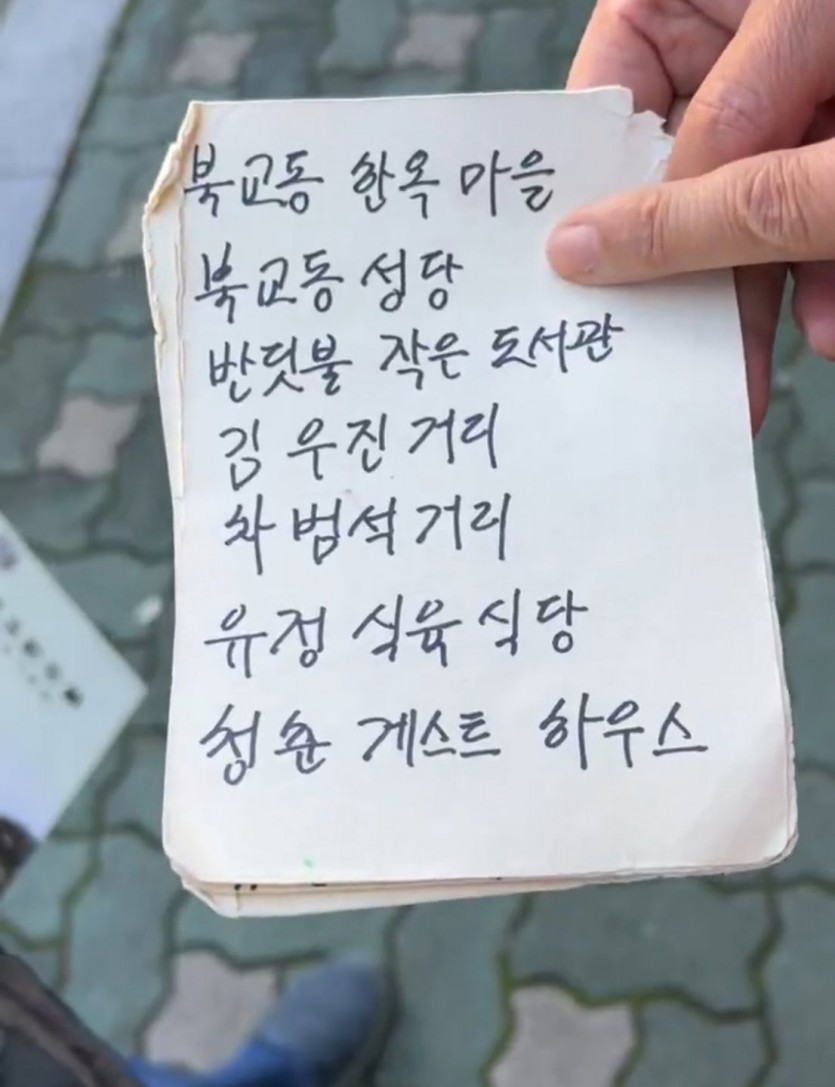 북교동 한옥 마을
북교동 성당
반딧불 작은 도서관
김우진 거리
차범석 거리
유정 식육 식당
청춘 게스트 하우스